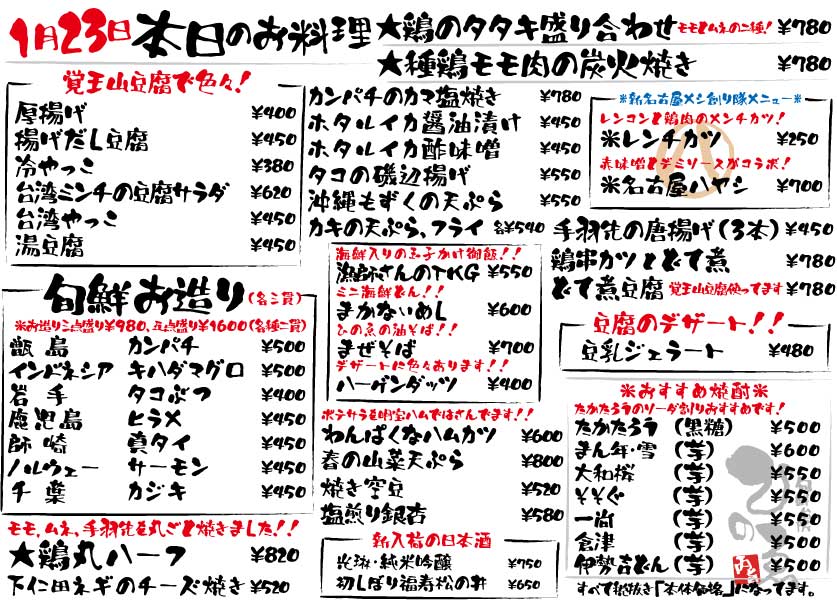 1月23日 本日のお料理
★鶏のタタキ盛り合わせ モモとムネの二種! ¥780
★種鶏モモ肉の炭火焼き ¥780
覚王山豆腐で色々!
厚揚げ ¥400
揚げだし豆腐 ¥450
冷やっこ ¥380
台湾ミンチの豆腐サラダ ¥620
台湾やっこ ¥450
湯豆腐 ¥450
旬鮮お造り(各三貫)
※お造り三点盛り¥980、五点盛り¥1600(各種二貫)
甑島 カンパチ ¥500
インドネシア キハダマグロ ¥500
岩手 タコぶつ ¥400
鹿児島 ヒラメ ¥450
師崎 真タイ ¥450
ノルウェー サーモン ¥450
千葉 カジキ ¥450
モモ、ムネ、手羽先を丸ごと焼きました!!
★鶏丸ハーフ ¥820
下仁田ネギのチーズ焼き ¥520
カンパチのカマ塩焼き ¥780
ホタルイカ醤油漬け ¥450
ホタルイカ酢味噌 ¥450
タコの磯辺揚げ ¥550
沖縄もずくの天ぷら ¥550
カキの天ぷら、フライ 各¥540
海鮮入りの玉子かけ御飯!!
漁師さんのTKG ¥550
ミニ海鮮どん!!
まかないめし ¥600
ひの鳥の油そば!!
まぜそば ¥700
デザートに色々おります!!
ハーゲンダッツ ¥400
ポテサラを明宝ハムではさんでます!!
わんぱくなハムカツ ¥600
春の山菜天ぷら ¥800
焼き空豆 ¥520
塩煎り銀杏 ¥580
新入荷の日本酒
光琳・純米吟醸 ¥750
初しぼり福寿松の井 ¥650
※新名古屋メシ創り隊メニュー※
レンコンと鶏肉のメンチカツ!
※レンチカツ ¥250
赤味噌とデミソースがコラボ!
※名古屋ハヤシ ¥700
手羽先の唐揚げ(3本) ¥450
鶏串カツとどて煮 ¥780
どて煮豆腐 覚王山豆腐使ってます ¥780
豆腐のデザート!!
豆乳ジェラート ¥480
※おすすめ焼酎※
たかたろうのソーダ割りおすすめです!
たかたろう (黒糖) ¥500
まん年・雪 (芋) ¥600
大和桜 (芋) ¥550
そそぐ (芋) ¥550
一尚 (芋) ¥550
倉津 (芋) ¥500
伊勢吉どん (芋) ¥500
すべて税抜き「本体価格」になってます。